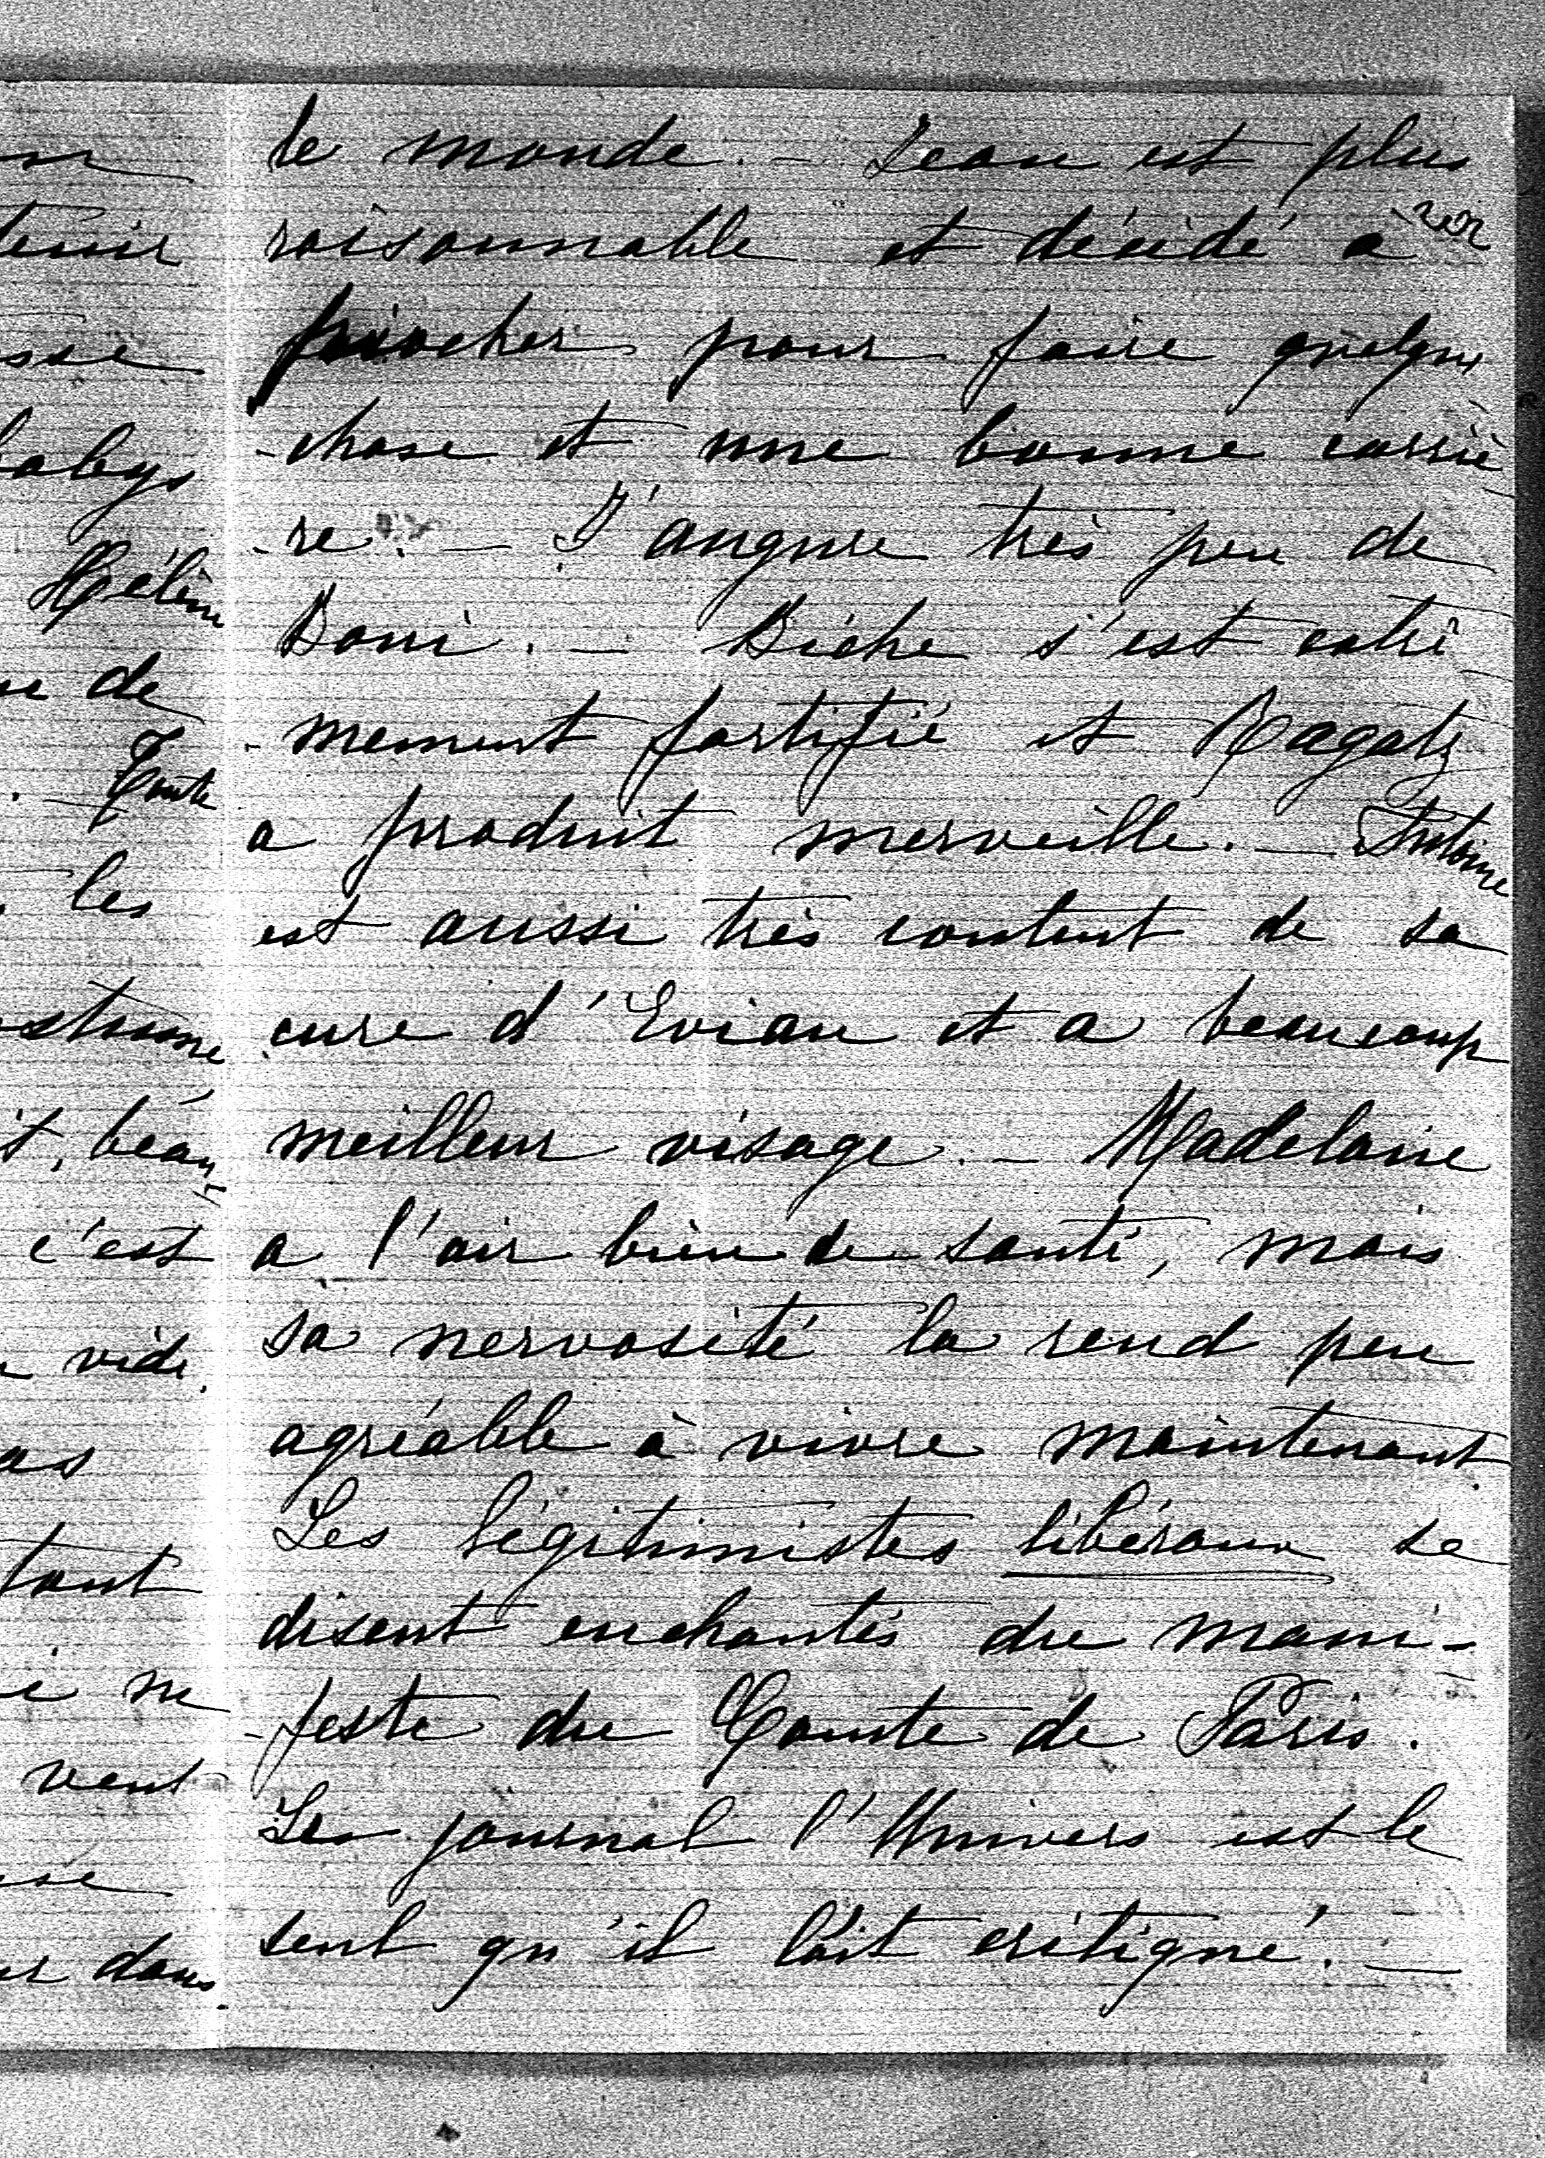 le monde. — Jean est plus
raisonnable et décidé à
piocher pour faire quelque
-chose et une bonne carriè
-re. — J'augure très peu de
Boni. — Biche s'est extrê
-mement fortifié et Ragatz
a produit merveille. — Antoine
est aussi très content de sa
cure d'Evian et a beaucoup
meilleur visage. — Madelaine
a l'air bien de santé, mais
sa nervosité la rend peu
agréable à vivre maintenant.
Les légitimistes libéraux se
disent enchantés du mani-
-feste du Comte de Paris.
Le journal l'Univers est le
seul qu'il l'ait critiqué. —
tenir
babys
Hélène
de
Toute
les
beau
c'est
vide.
tant
vent
dans